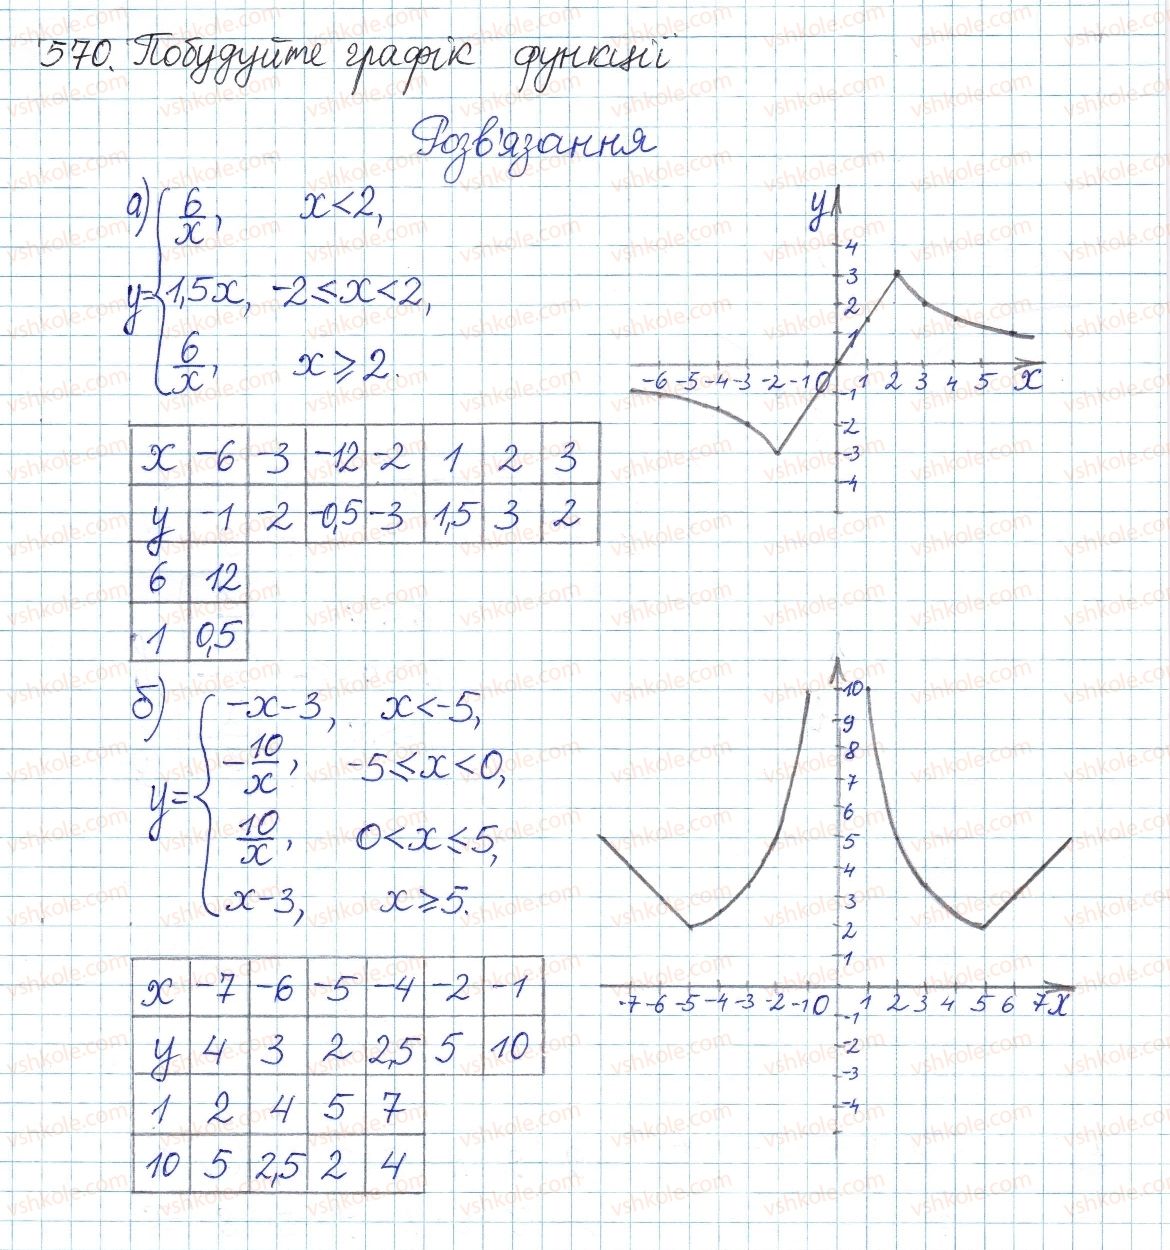 570. Побудуйте графік функції
Розв'язання
а) y = { 6/x, x < 2,
1,5x, -2 ≤ x < 2,
6/x, x ≥ 2.
x -6 -3 -12 -2 1 2 3
y -1 -2 -0,5 -3 1,5 3 2
6 12
1 0,5
y
4
3
2
1
-6 -5 -4 -3 -2 -1 0 1 2 3 4 5 x
-1
-2
-3
-4
б) y = { -x-3, x < -5,
-10/x, -5 ≤ x < 0,
10/x, 0 < x ≤ 5,
x-3, x ≥ 5.
x -7 -6 -5 -4 -2 -1
y 4 3 2 2,5 5 10
1 2 4 5 7
10 5 2,5 2 4
10
9
8
7
6
5
4
3
2
1
-7 -6 -5 -4 -3 -2 -1 0 1 2 3 4 5 6 7 x
-1
-2
-3
-4
vshkole.com